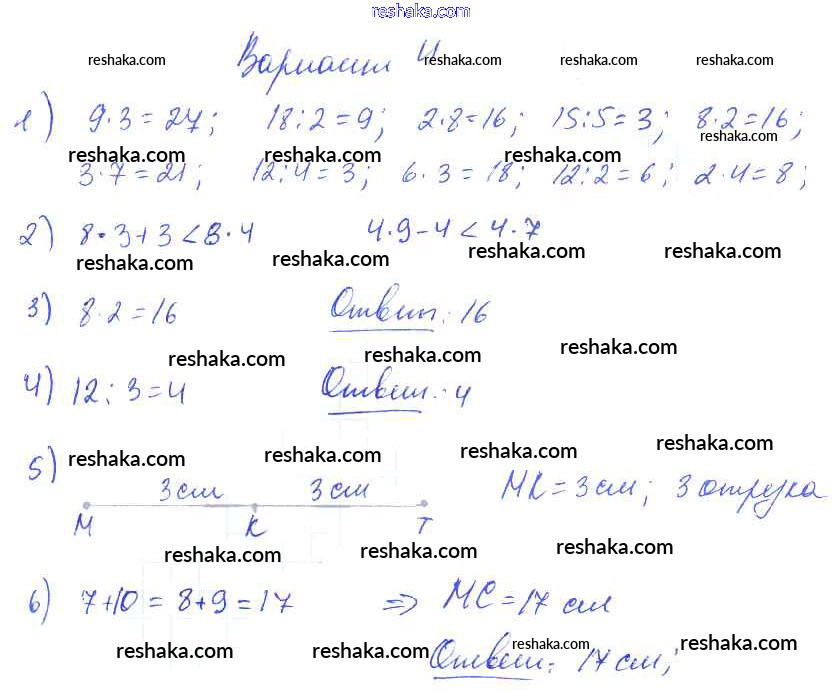 reshaka.com
Вариант 4
reshaka.com reshaka.com reshaka.com reshaka.com
1) 9·3=27; 18:2=9; 2·8=16; 15:5=3; 8·2=16;
reshaka.com
reshaka.com reshaka.com reshaka.com
3·7=21; 12:4=3; 6·3=18; 12:2=6; 2·4=8;
2) 8·3+3<8·4 4·9-4<4·7
reshaka.com reshaka.com reshaka.com reshaka.com
3) 8·2=16 Ответ: 16
reshaka.com reshaka.com reshaka.com
4) 12:3=4 Ответ: 4
5) reshaka.com reshaka.com reshaka.com reshaka.com
3 см 3 см МК=3 см; 3 отрезка
М К Т
reshaka.com reshaka.com reshaka.com
6) 7+10=8+9=17 => МС=17 см
reshaka.com reshaka.com reshaka.com reshaka.com
Ответ: 17 см;